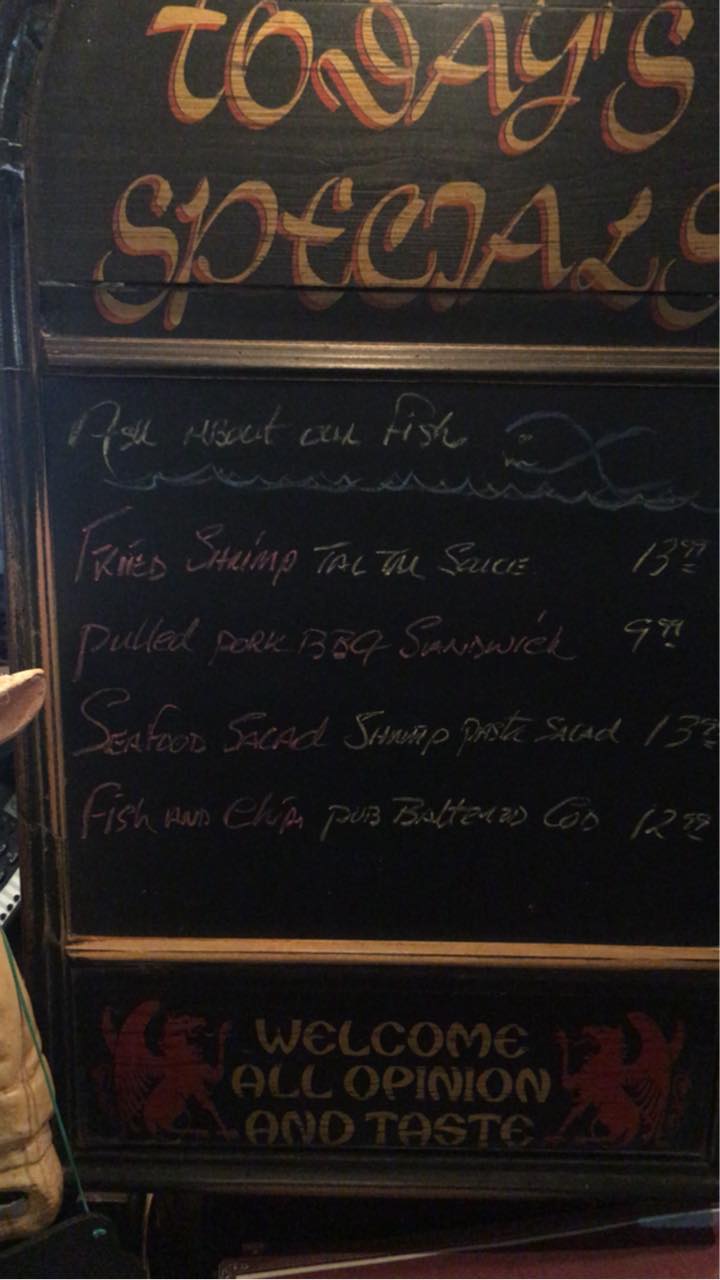 TODAY'S
SPECIALS
Ask About our Fish
FRIED Shrimp TAR TAR SAUCE 13 99
pulled PORK BBQ SANDWICH 9 99
SEAFOOD SALAD SHRIMP PASTA SALAD 13 99
Fish AND Chips PUB BATTERED COD 12 99
WELCOME
ALL OPINION
AND TASTE